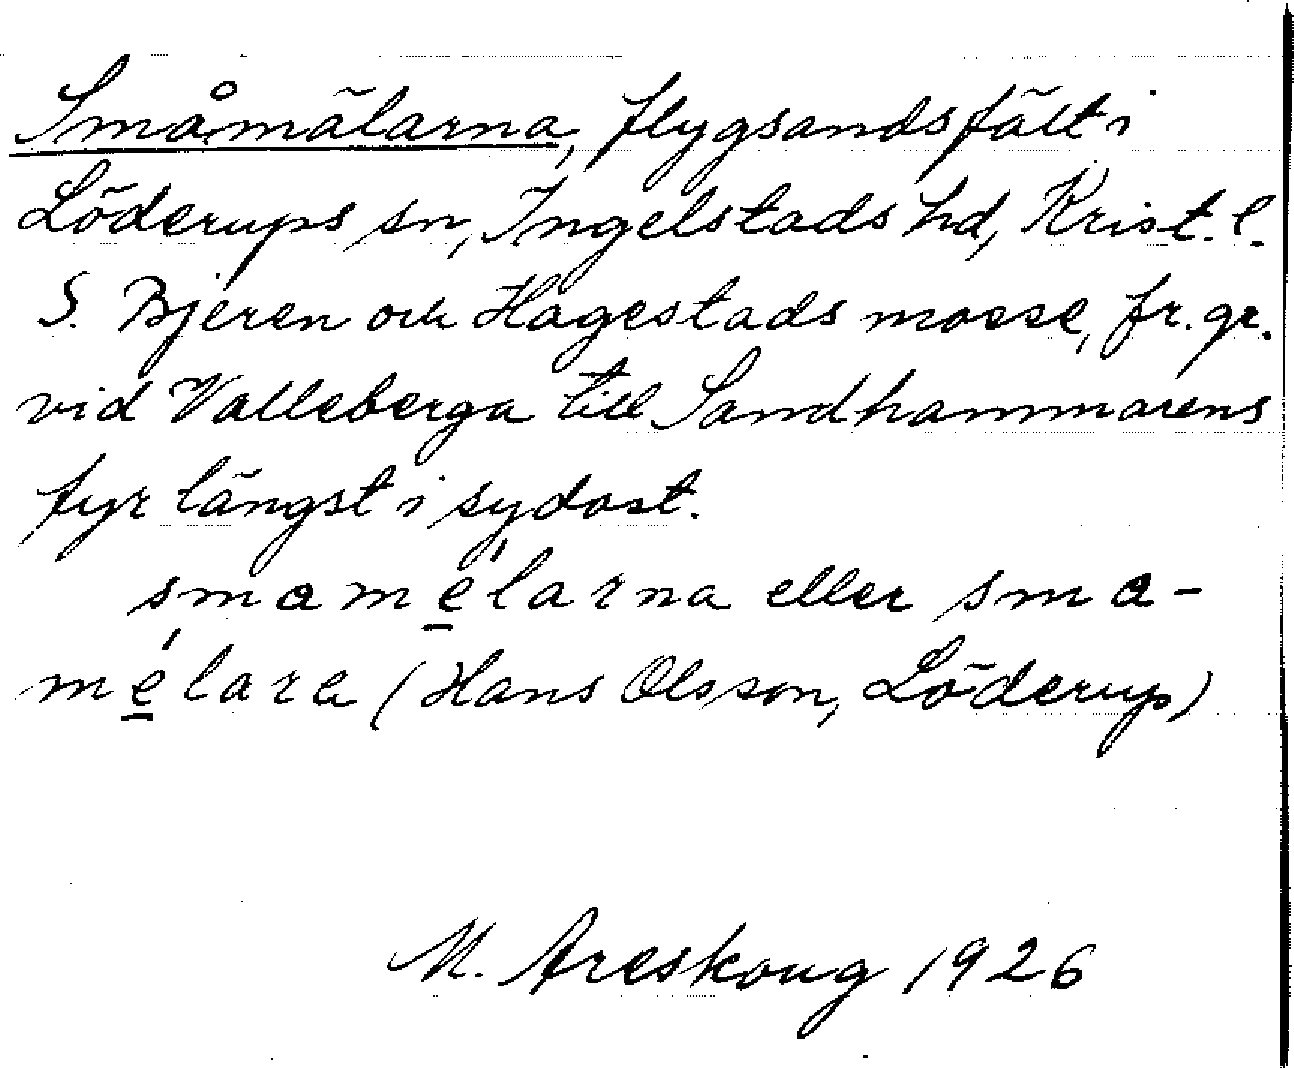 Småmälarna, flygsandsfält i
Löderups sn, Ingelstads hd, Krist. l.
S. Bjeren och Hagestads mosse, fr. gr.
vid Valleberga till Sandhammarens
fyr längst i sydost.
smamé̱larna eller sma-
mé̱lara (Hans Olsson, Löderup)
M. Areskoug 1926